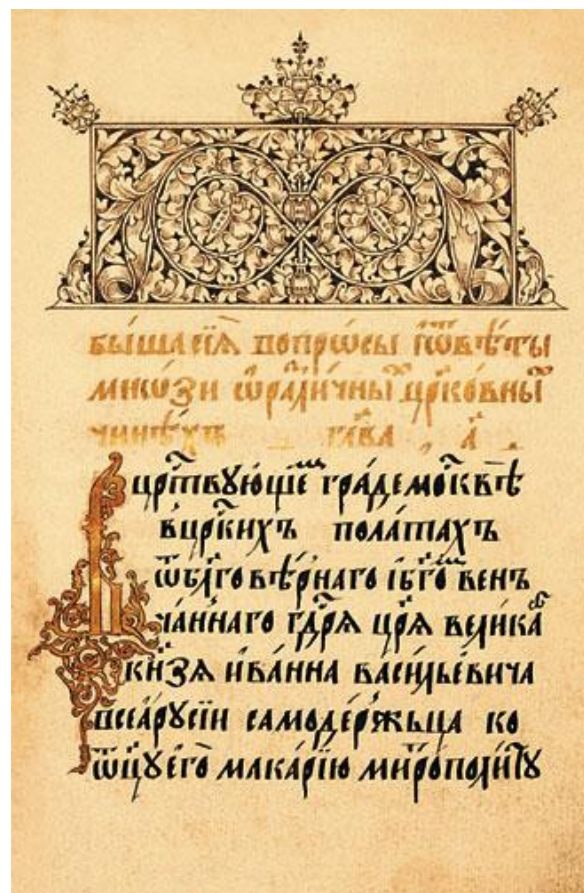 бы́ша сїѧ̀ вопрѡ́сы и҆ ѿвѣ́ты
мно́зи ѡ҆ разли́чныⷯ цр҃ко́вныⷯ
чинѣ́хъ глава̀ а҃
Въ црⷭ҇твꙋющїеⷨ гра́де мосⷦвѣ̀
в црⷭ҇кихъ пола́тахъ
ѿ бл҃говѣ́рнаго и бг҃оⷨ вен
ча́ннаго гдⷭ҇рѧ цр҃ѧ̀ велика
кн҃зѧ и҆ва́нна васи́льевича
всеѧ̀ рꙋсїи самоде́ржьца ко
ѿцꙋ̀ его̀ мака́рїю митрополи́тꙋ